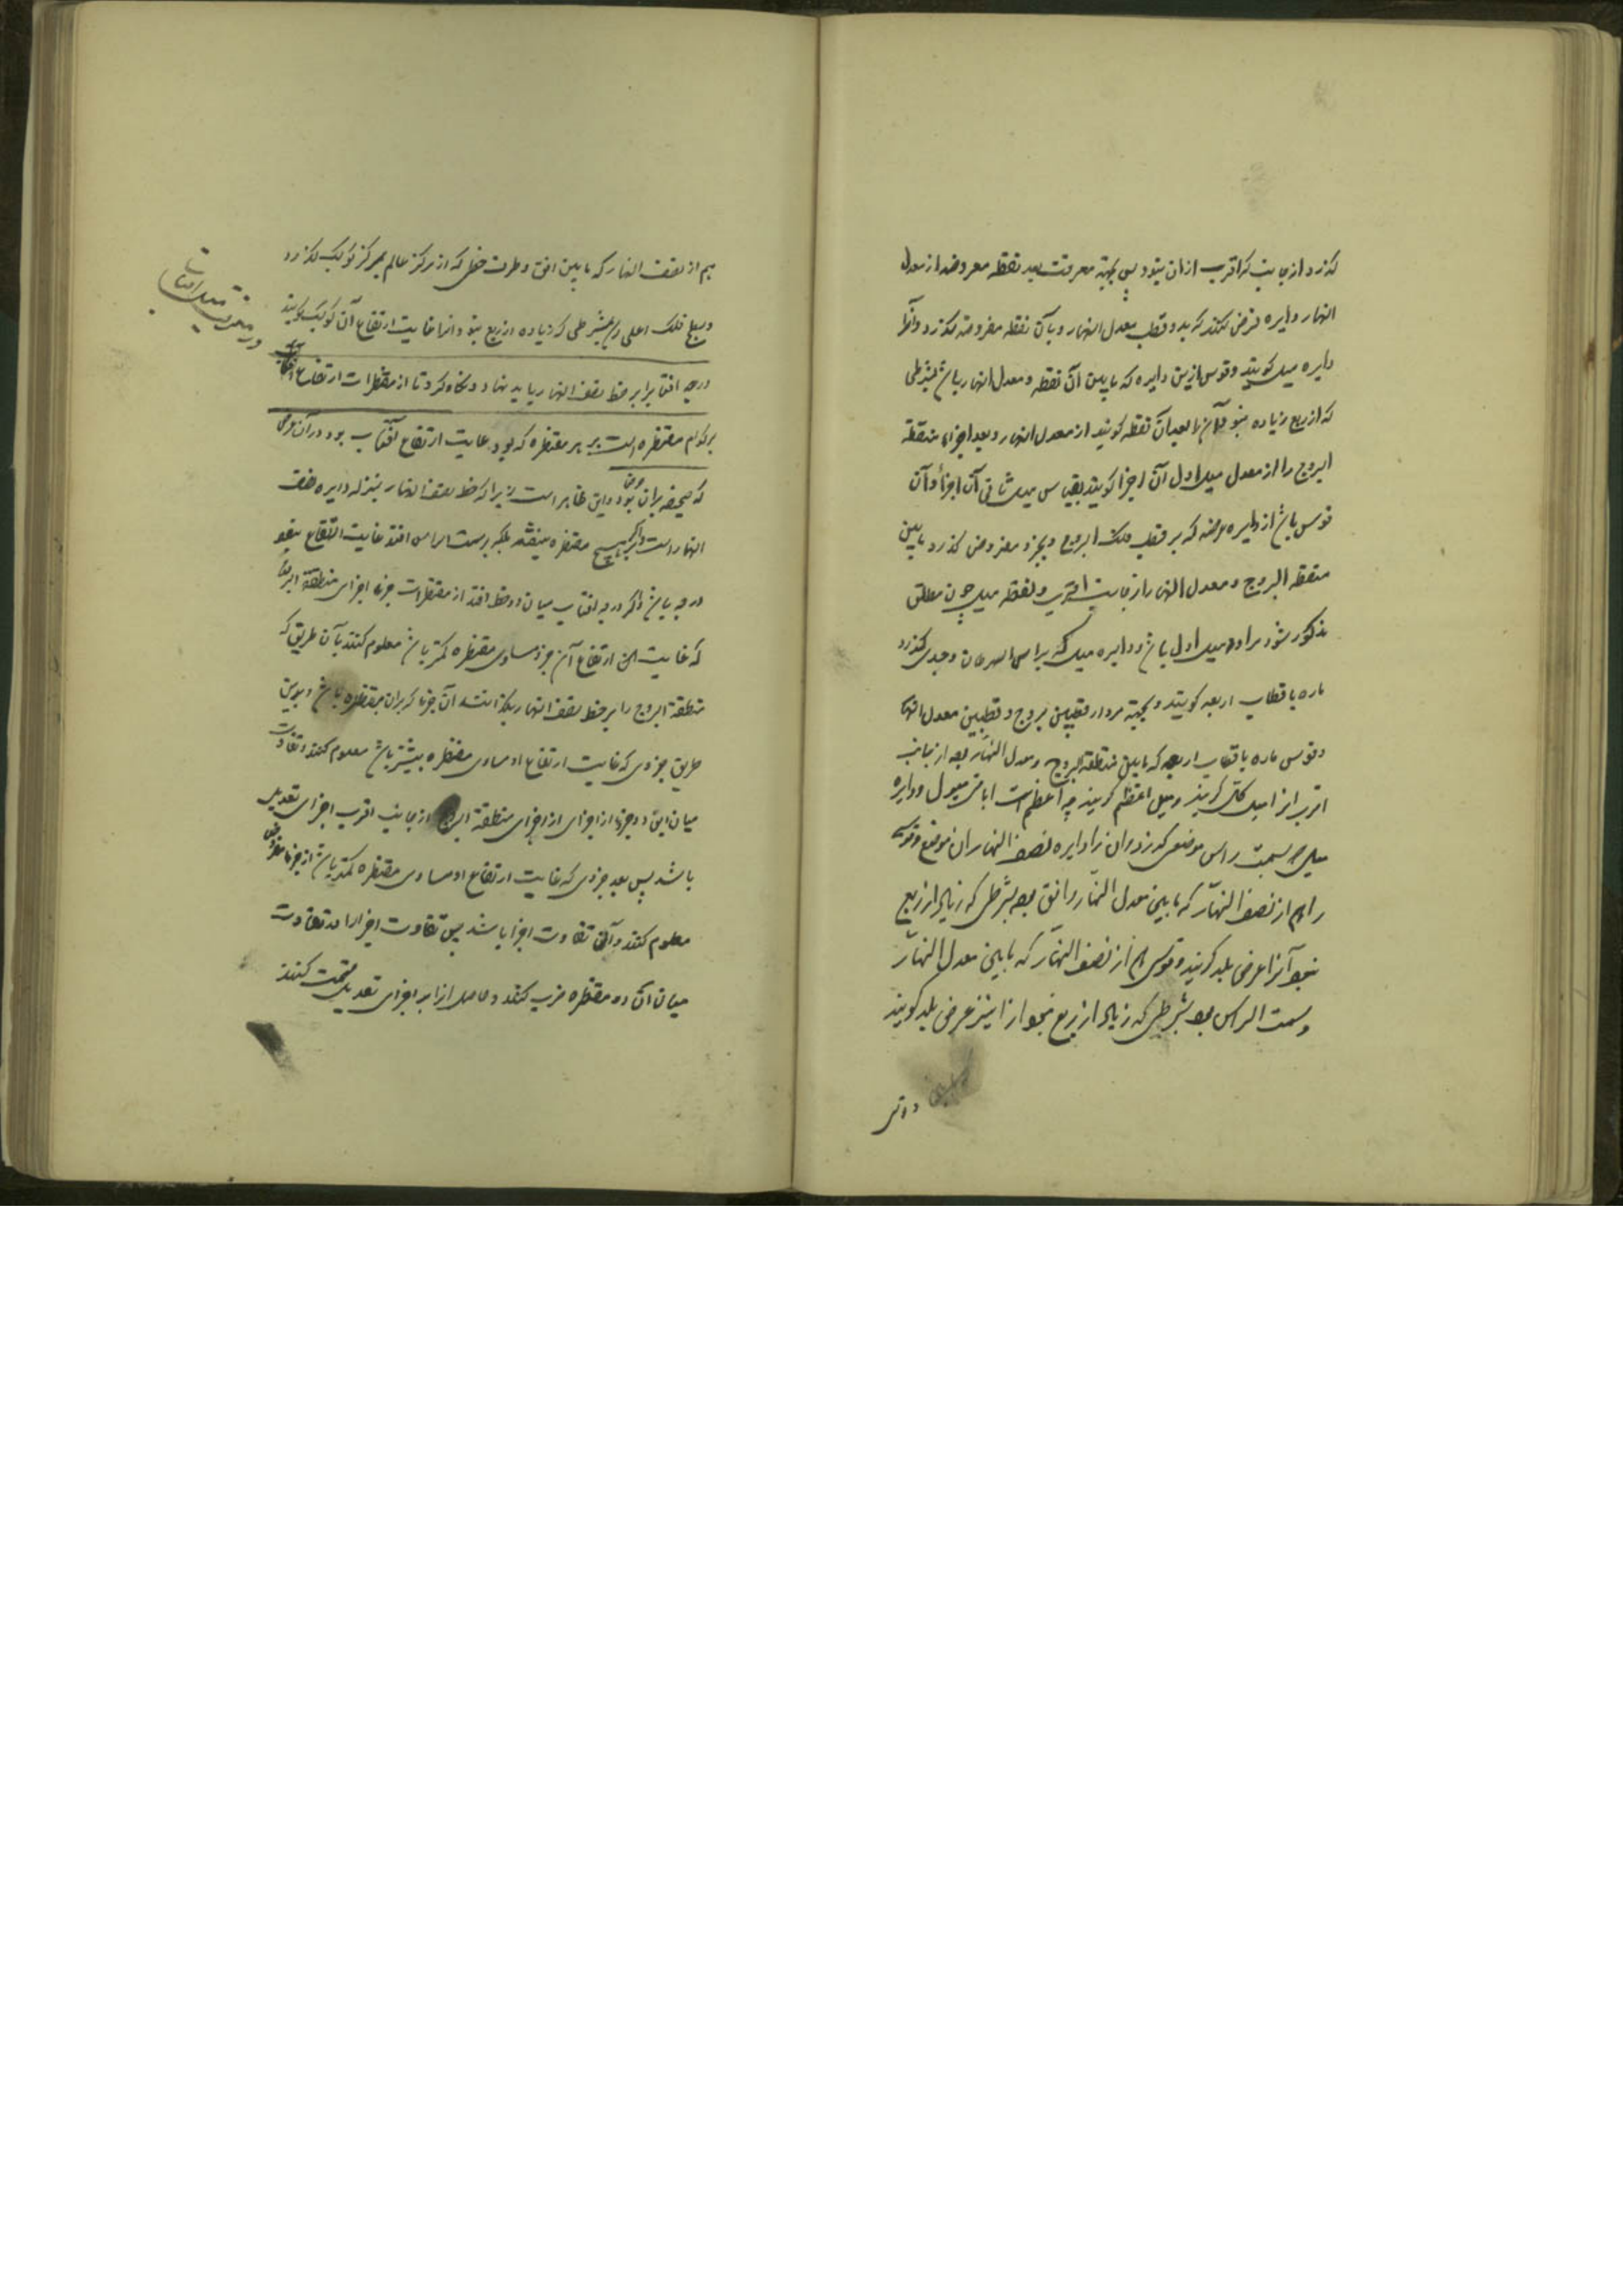 گذرد از جانبی که اقرب از ان بنود پس بجهته معرفت بعد نقطه معروضه از معدل
النهار دایره فرض کنند که بدو قطب معدل النهار و بآن نقطه مفروضه بگذرد و آنرا
دایره میل گویند و قوس ازین دایره که مابین آن نقطه و معدل النهار باشد بشرطی
که از ربع زیاده نبود آن را بعد آن نقطه گویند از معدل النهار و بعد اجزاء منطقة
البروج را از معدل میل اول آن اجزا گویند بقیاس میل ثانی آن اجزا و آن
قوس باشد از دایره عرضه که بر قطب فلک البروج و بجزو مفروض گذرد مابین
منطقه البروج و معدل النهار از جانب اقرب و لفظه میل چون مطلق
مذکور شود مراد میل اول باشد و دایره میل که براس السرطان و جدی گذرد
ماره باقطاب اربعه گویند و بجهته مرور او بقطبین بروج و قطبین معدل النهار
و قوس ماره باقطاب اربعه که مابین منطقة البروج و معدل النهار بود از جانب
اقرب انرا میل کلی گویند و میل اعظم گویند چه اعظم است از باقی میول و دایره
میل که بسمت راس موضعی گذرد ان را دایره نصف النهار ان موضع و قوسی
را هم از نصف النهار که مابین معدل النهار و افق بود بشرطی که زیاده از ربع
نبود آنرا عرض بلد گویند و قوسی هم از نصف النهار که مابین معدل النهار
و سمت الراس بود بشرطی که زیاده از ربع نبود انرا نیز عرض بلد گویند
و قوسی
هم از نصف النهار که مابین افق و طرف خطی که از مرکز عالم بمرکز کوکب بگذرد
و بسطح فلک اعلی رسد بشرطی که زیاده از ربع نبود و انرا غایت ارتفاع آن کوکب گویند
درجه افتاب را بر خط نصف النهار باید نهاد و نگاه کرد تا از مقنطرات ارتفاع افتاب
بر کدام مقنطره است پس هر مقنطره که بود غایت ارتفاع آفتاب بود در آن عرض
که صحیفه بران عرض بود و این ظاهر است زیرا که خط نصف النهار بمنزله دایره نصف
النهار است و اگر بهیچ مقنطره نیفتد بلکه بر سمت الراس افتد غایت ارتفاع نود
درجه باشد و اگر درجه افتاب میان دو خط افتد از مقنطرات جزء اجزای منطقة البروج
که غایت ارتفاع آن جزو مساوی مقنطره کمتر باشد معلوم کنند بآن طریق که
منطقة البروج را بر خط نصف النهار بگذرانند ان جزء که بران مقنطره باشد و بهمین
طریق جزوی که غایت ارتفاع او مساوی مقنطره بیشتر باشد معلوم کنند و تفاوت
میان این دو جزء از اجزای منطقة البروج از جانب اقرب اجزای تعدیل
باشد پس بعد جزوی که غایت ارتفاع او مساوی مقنطره کمتر باشد از جزء مفروض
معلوم کنند و آن تفاوت اجزا باشد پس تفاوت اجزا را در تفاوت
میان آن دو مقنطره ضرب کنند و حاصل را بر اجزای تعدیل قسمت کنند